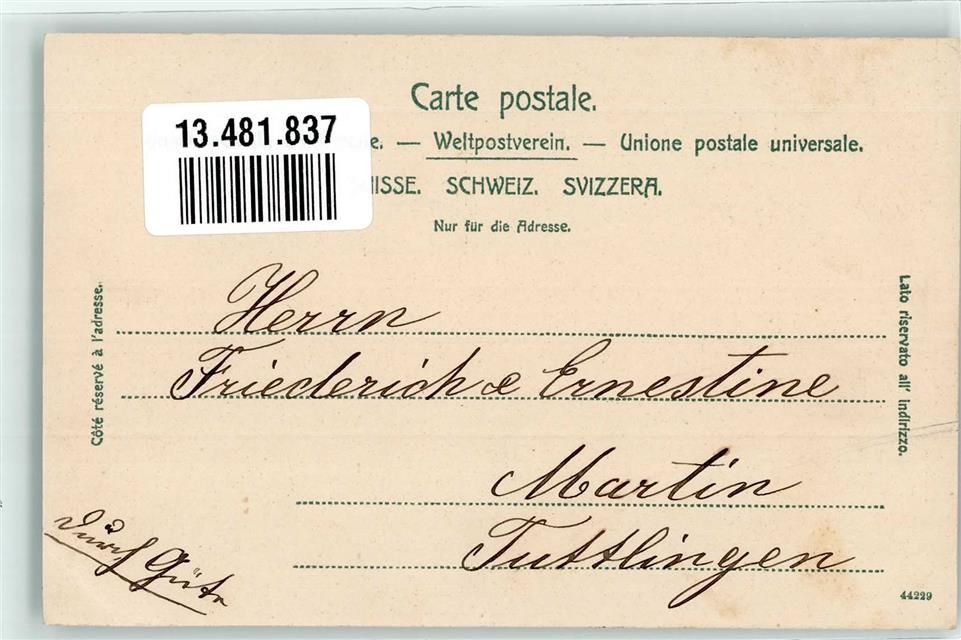 Carte postale.
13.481.837
e. — Weltpostverein. — Unione postale universale.
ISSE. SCHWEIZ. SVIZZERA.
Nur für die Adresse.
Côté réservé à l'adresse.
Lato riservato all' indirizzo.
Herrn
Friederich & Ernestine
Martin
Tuttlingen
Durch Güte
44229